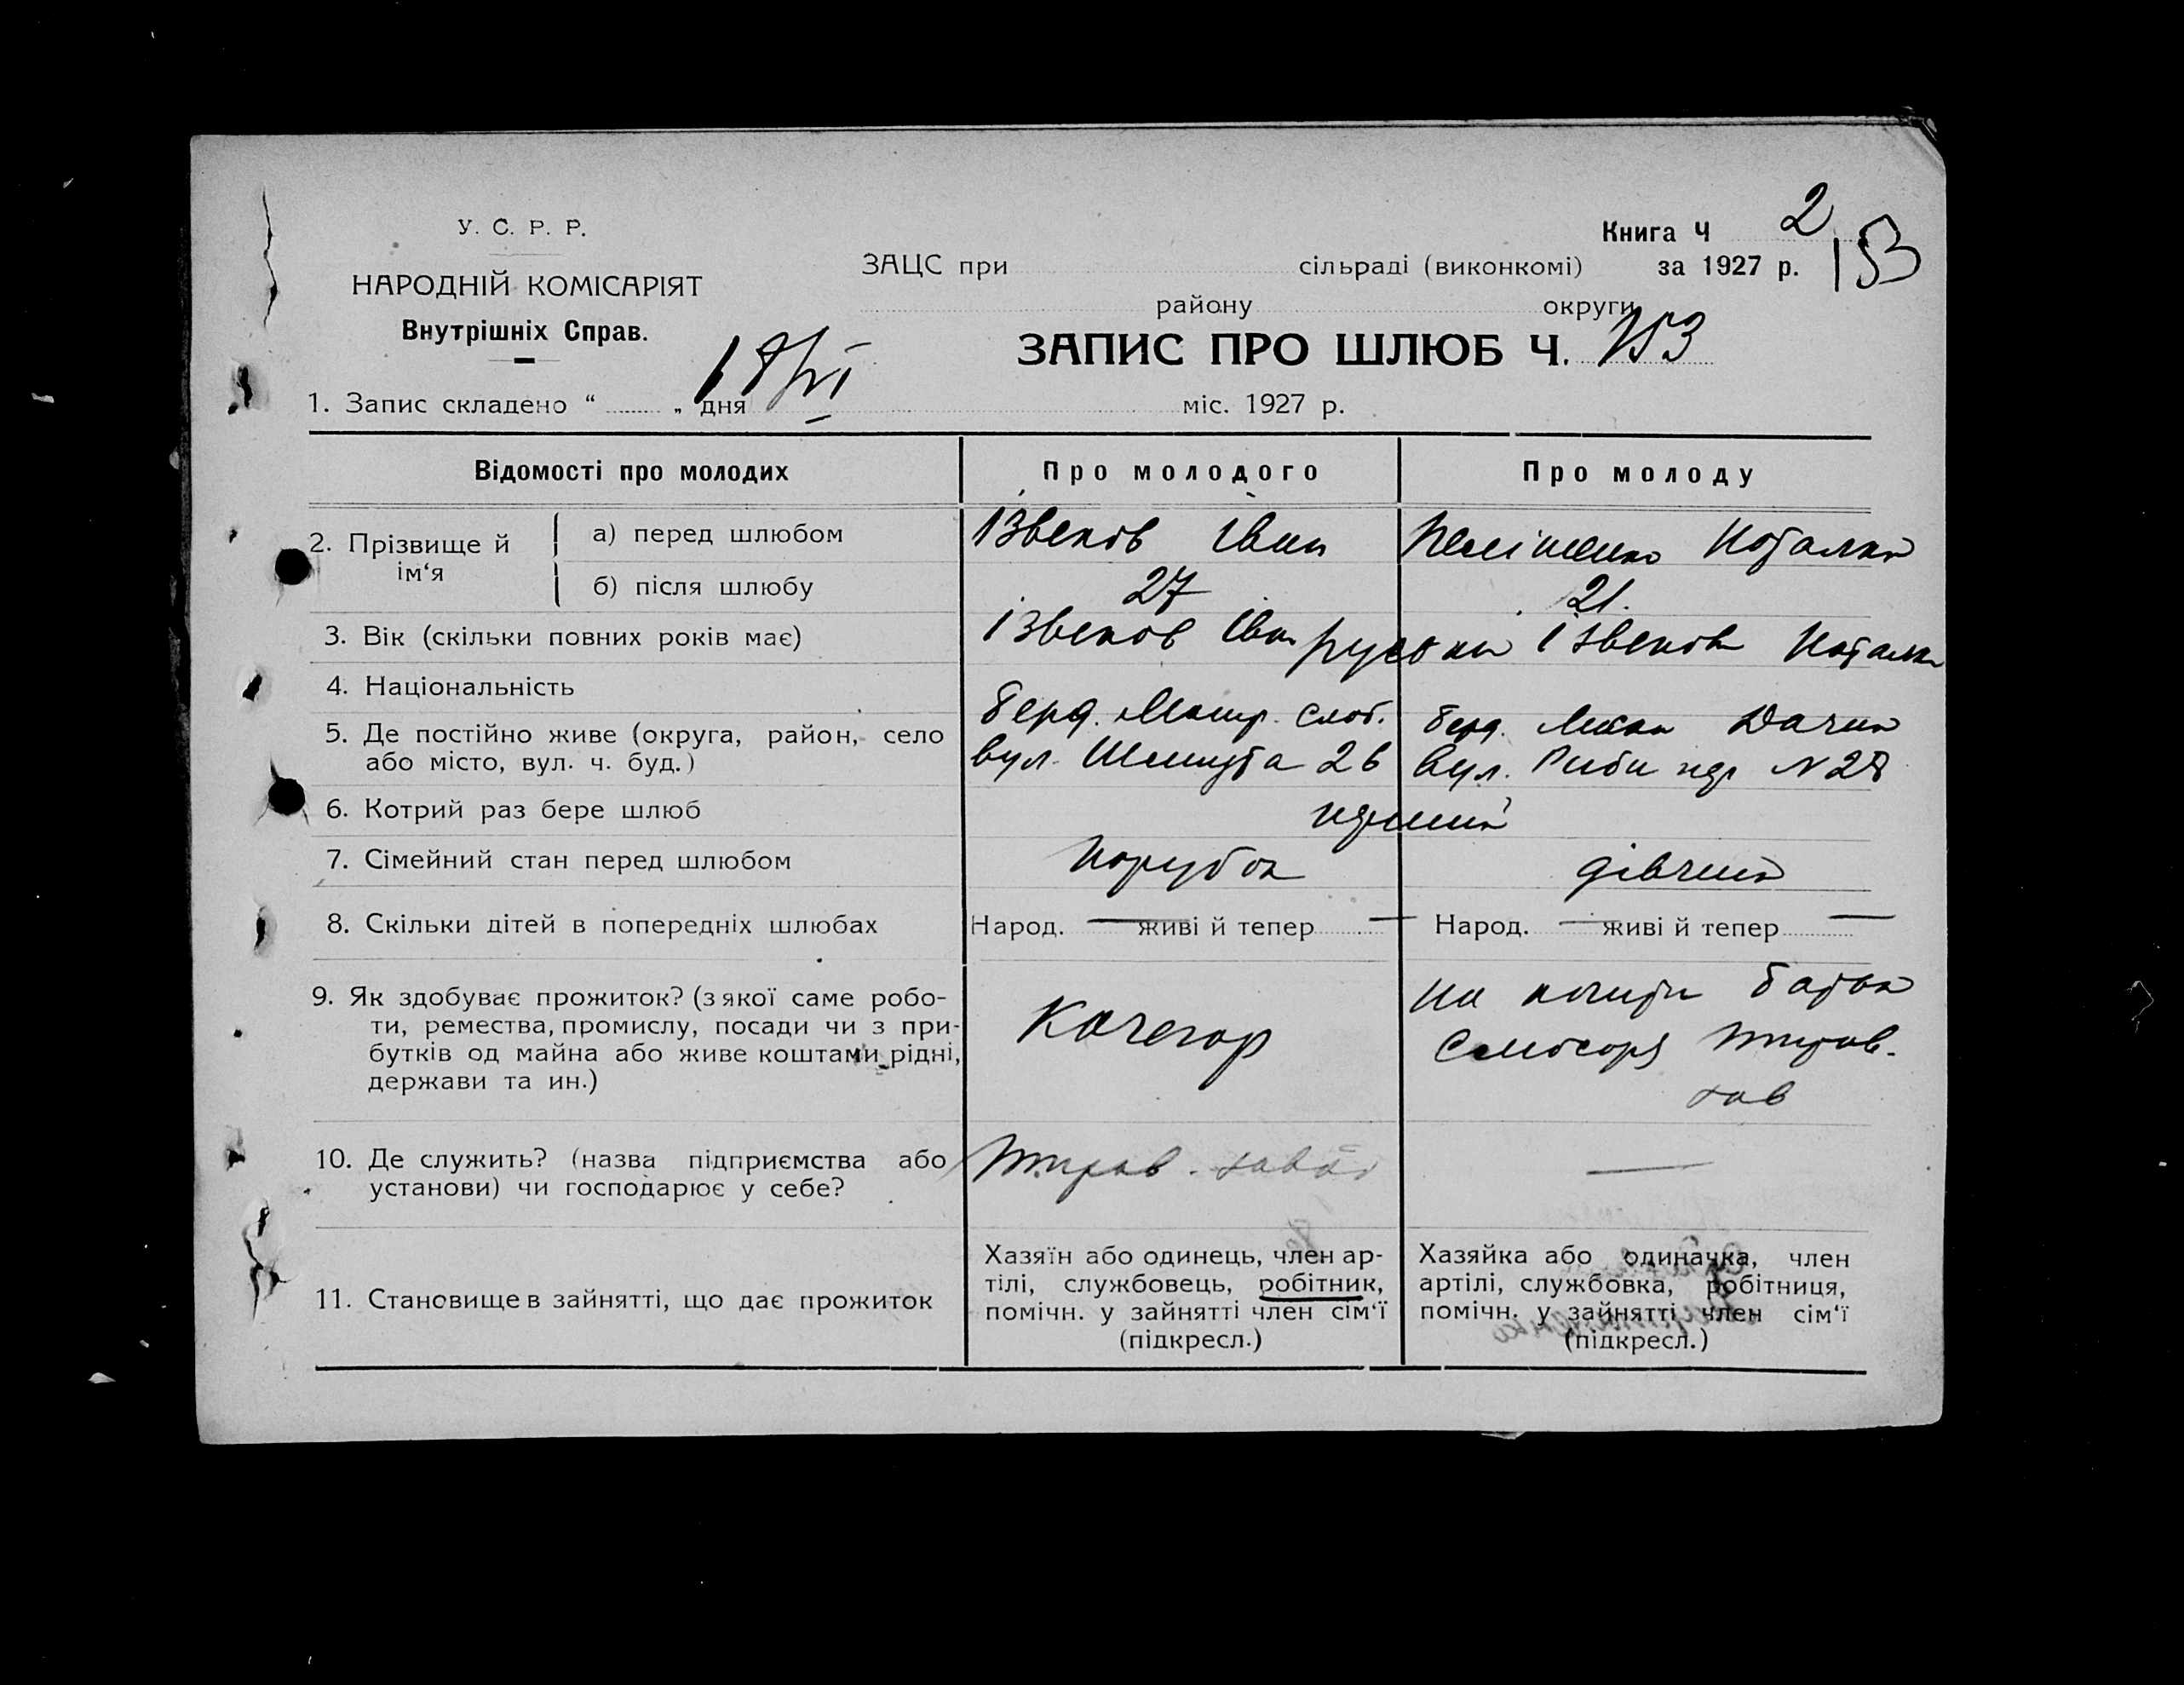 У. С. Р. Р.
НАРОДНІЙ КОМІСАРІЯТ
Внутрішніх Справ.
Книга Ч 2
за 1927 р. 153
ЗАЦС при сільраді (виконкомі)
району округи
ЗАПИС ПРО ШЛЮБ Ч. 153
1. Запис складено “ „ дня 18/VI міс. 1927 р.
Відомості про молодих Про молодого Про молоду
2. Прізвище й ім‘я
а) перед шлюбом Ізвеков Іван Наталка
б) після шлюбу 27 21.
3. Вік (скільки повних років має) Ізвеков Іван Ізвекова Наталка
4. Національність руські
5. Де постійно живе (округа, район, село Берд. слоб. Берд. Дачна
або місто, вул. ч. буд.) вул. Шмидта 26 вул. №28
6. Котрий раз бере шлюб перший
7. Сімейний стан перед шлюбом парубок дівчина
8. Скільки дітей в попередніх шлюбах Народ. — живі й тепер — Народ. — живі й тепер —
9. Як здобуває прожиток? (з якої саме робо-
ти, ремества, промислу, посади чи з при-
бутків од майна або живе коштами рідні,
держави та ин.)
Качегар
на кошти батька
зав
10. Де служить? (назва підприємства або
установи) чи господарює у себе?
завод —
11. Становище в зайнятті, що дає прожиток
Хазяїн або одинець, член ар-
тілі, службовець, робітник,
помічн. у зайнятті член сім‘ї
(підкресл.)
Хазяйка або одиначка, член
артілі, службовка, робітниця,
помічн. у зайнятті член сім‘ї
(підкресл.)